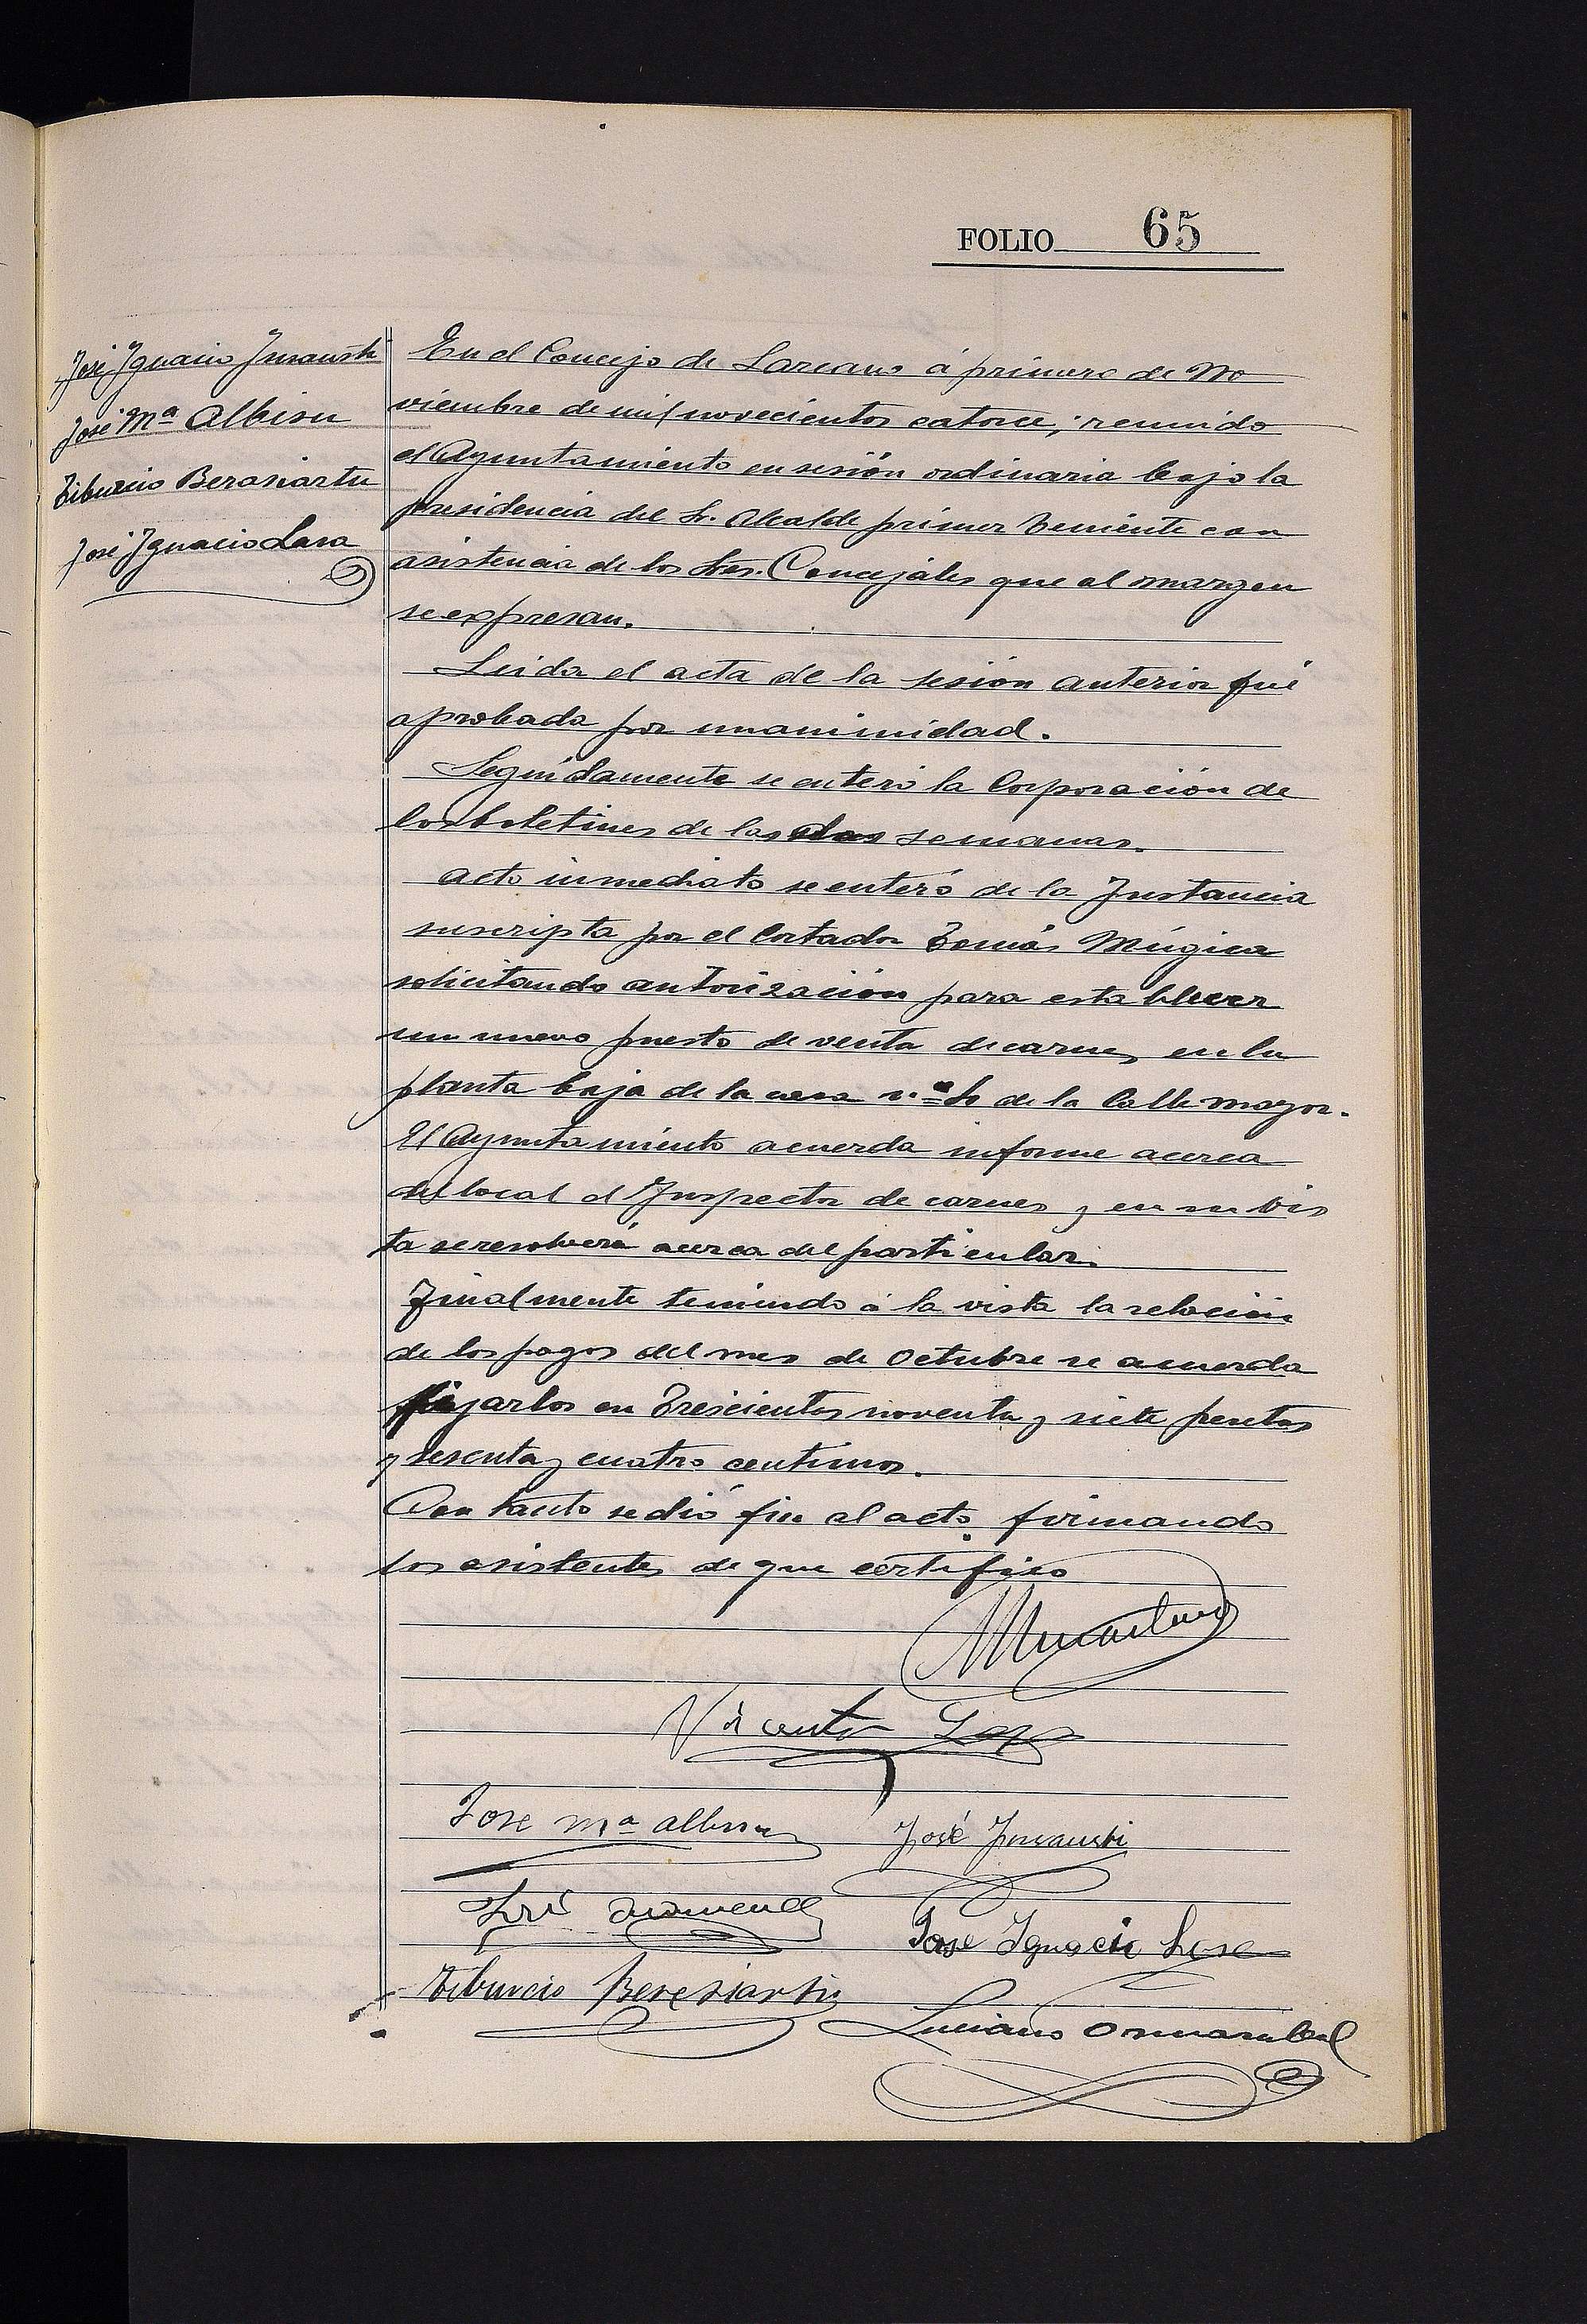 FOLIO 65
José Ignacio Insausti
José Mª Albisu
Tiburcio Berasiartu
José Ignacio Lasa
En el Concejo de Lazcano á primero de No
viembre de mil novecientos catorce; reunido
el Ayuntamiento en sesión ordinaria bajo la
presidencia del Sr. Alcalde primer Teniente con
asistencia de los Sres. Concejales que al margen
se expresan.
Leida el acta de la sesión anterior fué
aprobada por unanimidad.
Seguidamente se enteró la Corporación de
los boletines de las dos semanas.
Acto inmediato se enteró de la Instancia
suscripta por el Cortador Tomás Múgica
solicitando autorización para establecer
un nuevo puesto de venta de carnes en la
planta baja de la casa n.º de la Calle mayor.
El Ayuntamiento acuerda informe acerca
del local el Inspector de carnes y en su vis
ta se resolverá acerca del particular.
Finalmente teniendo á la vista la relación
de los pagos del mes de Octubre se acuerda
fijarlos en Trescientas noventa y siete pesetas
y sesenta y cuatro centimos.
Con tanto se dió fin al acto firmando
los asistentes de que certifico
Vicente Lasa
Jose Mª Albisu José Insausti
José
Jose Ignacio Lasa
Tiburcio Berasiartu
Luciano Ormazabal